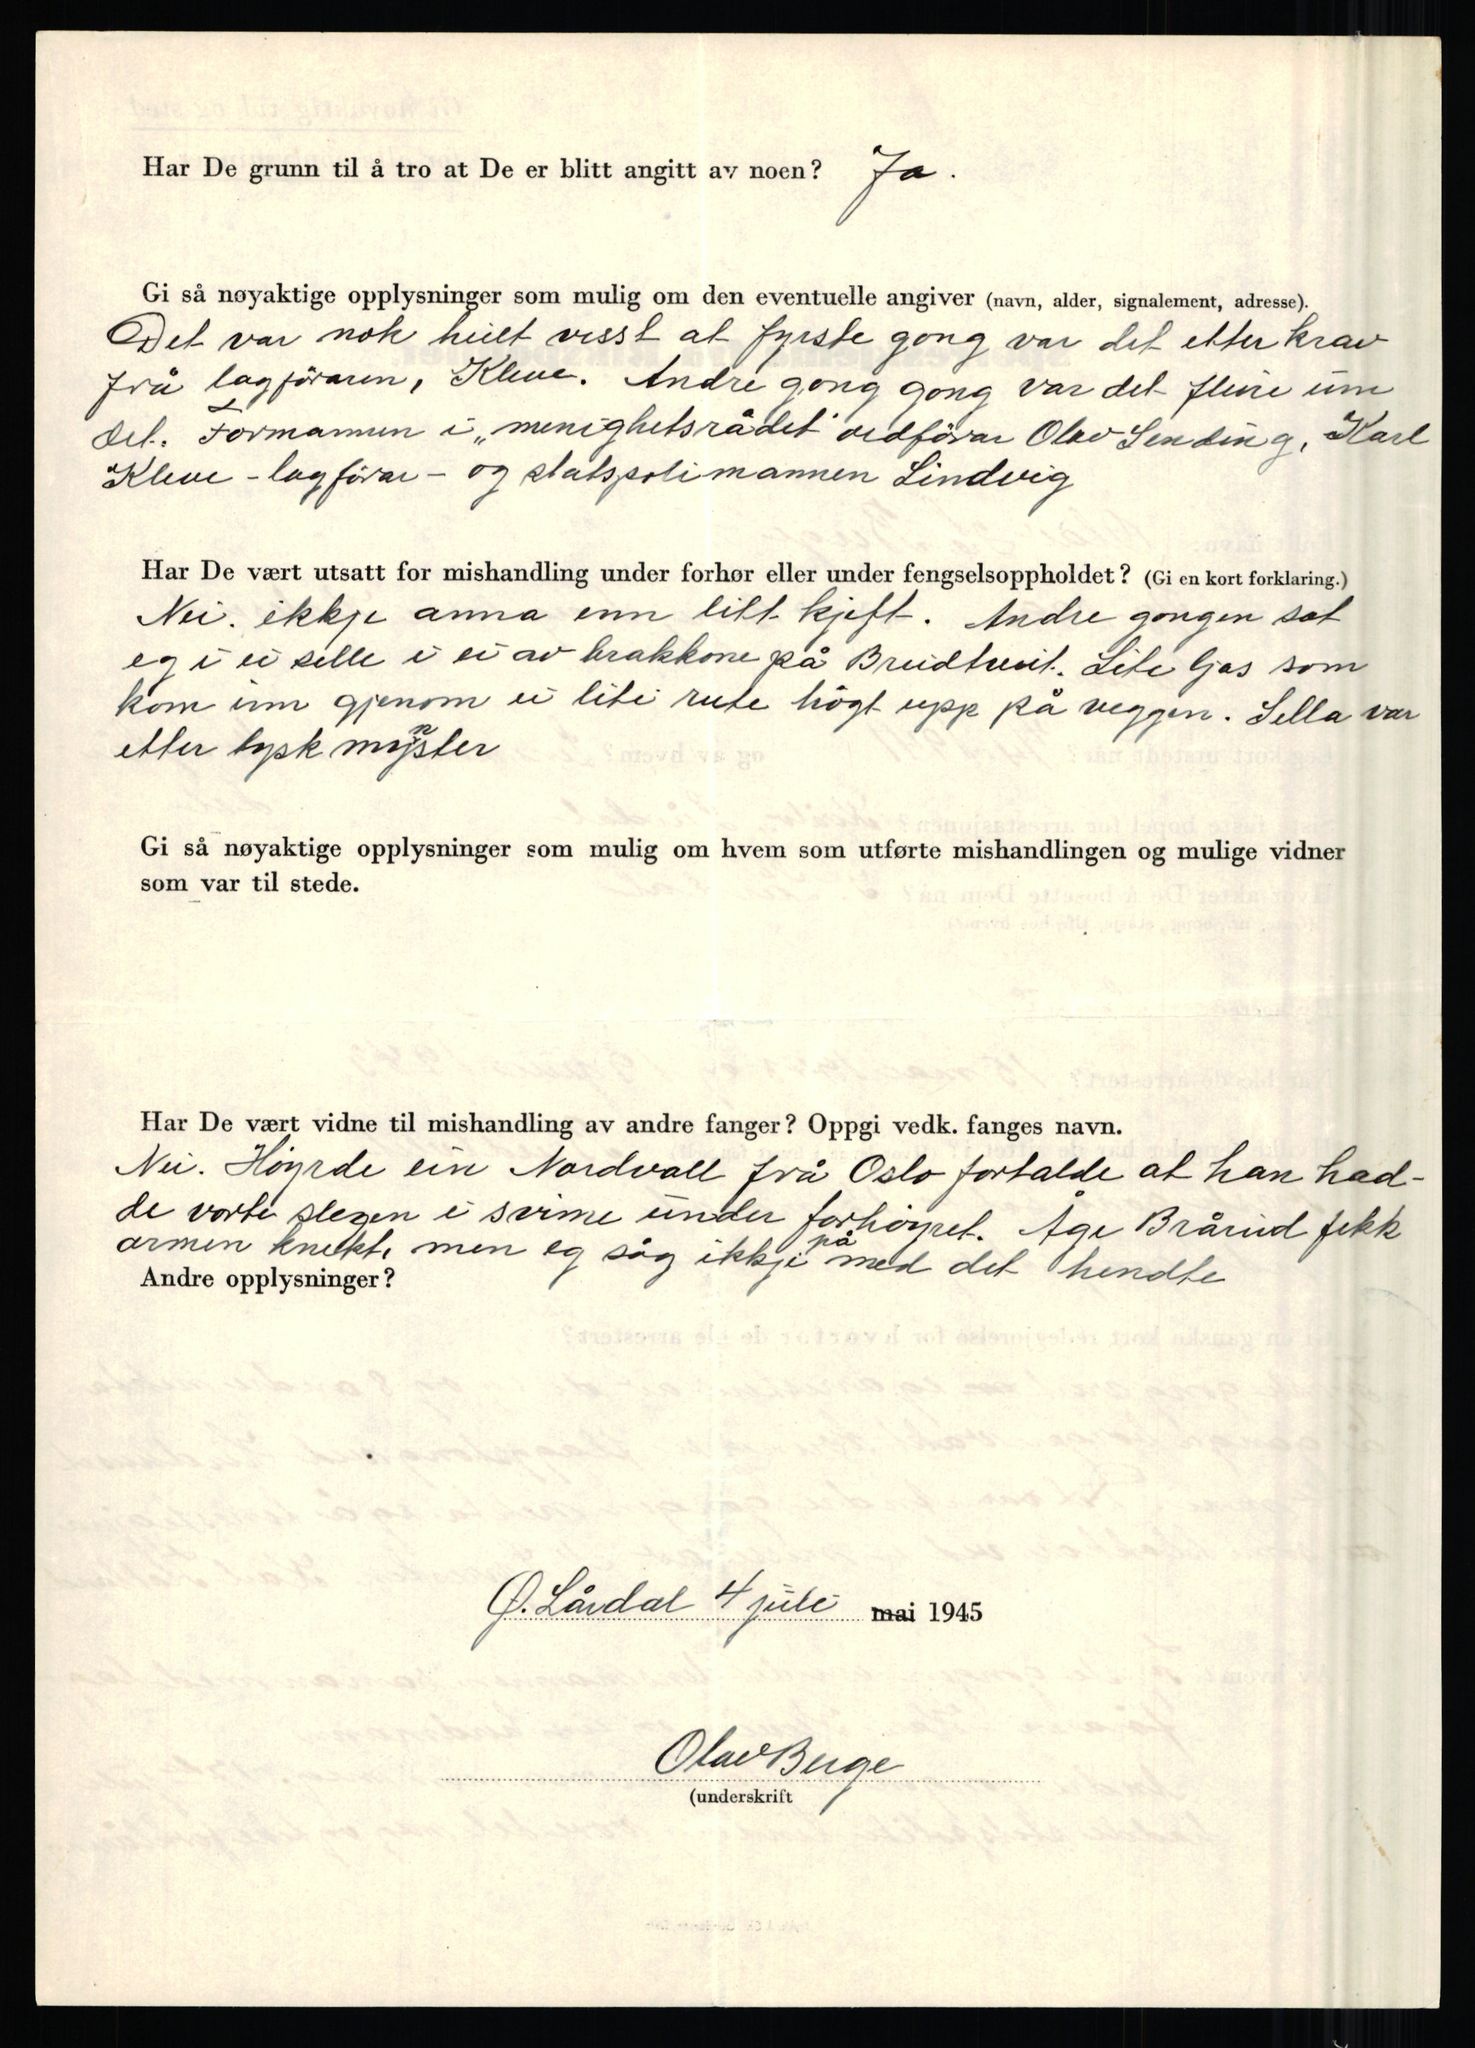 Har De grunn til å tro at De er blitt angitt av noen? Ja.
Gi så nøyaktige opplysninger som mulig om den eventuelle angiver (navn, alder, signalement, adresse).
Det var nok heilt visst at fyrste gong var det etter krav
frå lagföraren, Kleve. Andre gong gong var det fleire um
det. Formannen i „menighetsrådet" ordförar Olav Sending, Karl
Kleve - lagförar - og statspolimannen Lindvig
Har De vært utsatt for mishandling under forhør eller under fengselsoppholdet? (Gi en kort forklaring.)
Nei. ikkje anna enn litt kjeft. Andre gongen sat
eg i ei selle i ei av brakkone på Breidtveit. Lite ljos som
kom inn gjenom ei liti rute högt upp på veggen. Sella var
etter tysk mynster
Gi så nøyaktige opplysninger som mulig om hvem som utførte mishandlingen og mulige vidner
som var til stede.
Har De vært vidne til mishandling av andre fanger? Oppgi vedk. fanges navn.
Nei. Höyrde ein Nordvall frå Oslo fortalde at han had-
de vorte slegen i svime under forhöyret. Åge Brårud fekk
armen knekt, men eg såg ikkje på med det hendte
Andre opplysninger?
Ø. Lårdal 4 juli mai 1945
Olav Berge
(underskrift